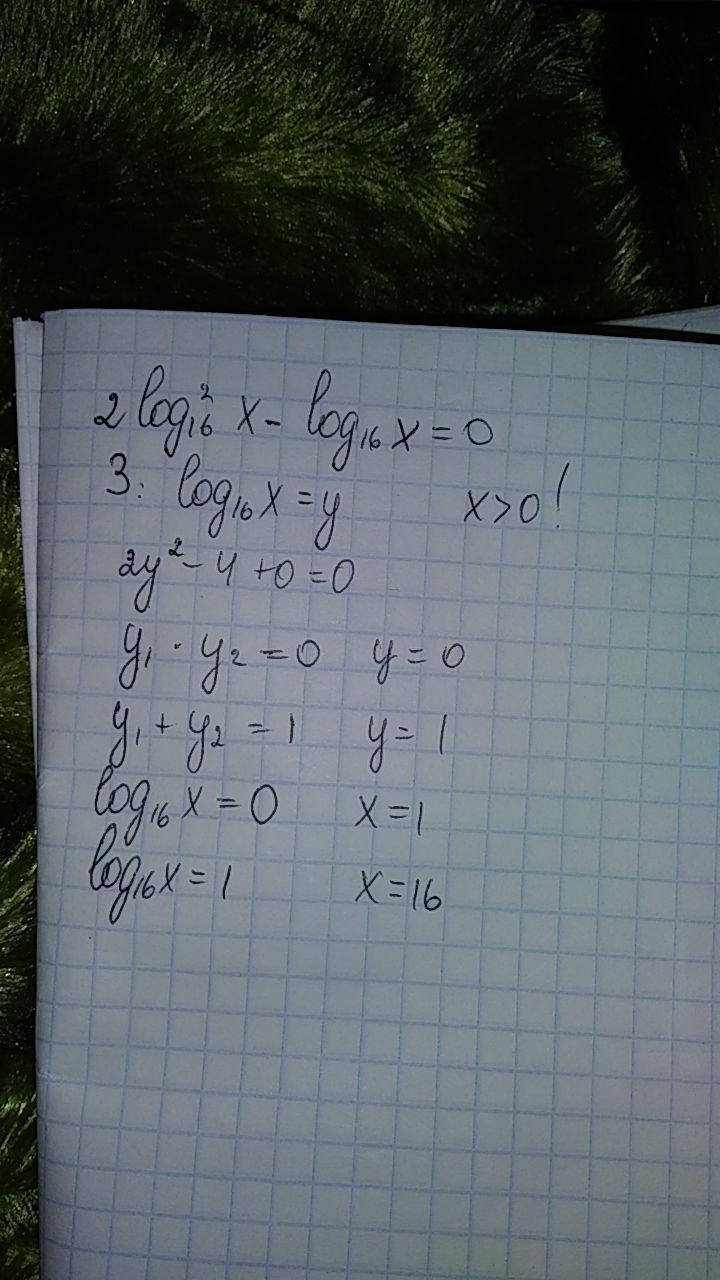 2 log²₁₆ x - log₁₆ x = 0
З: log₁₆ x = y x > 0 !
2y² - y + 0 = 0
y₁ · y₂ = 0 y = 0
y₁ + y₂ = 1 y = 1
log₁₆ x = 0 x = 1
log₁₆ x = 1 x = 16